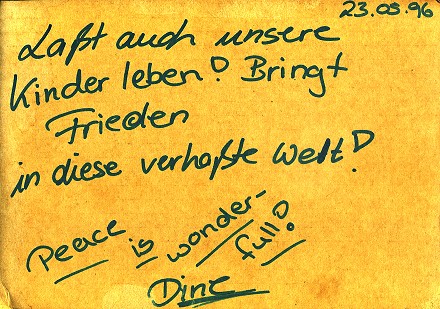 23.05.96
Laßt auch unsere
Kinder leben! Bringt
Frieden
in diese verhaßte Welt!
Peace is wonder-
full!
Dine